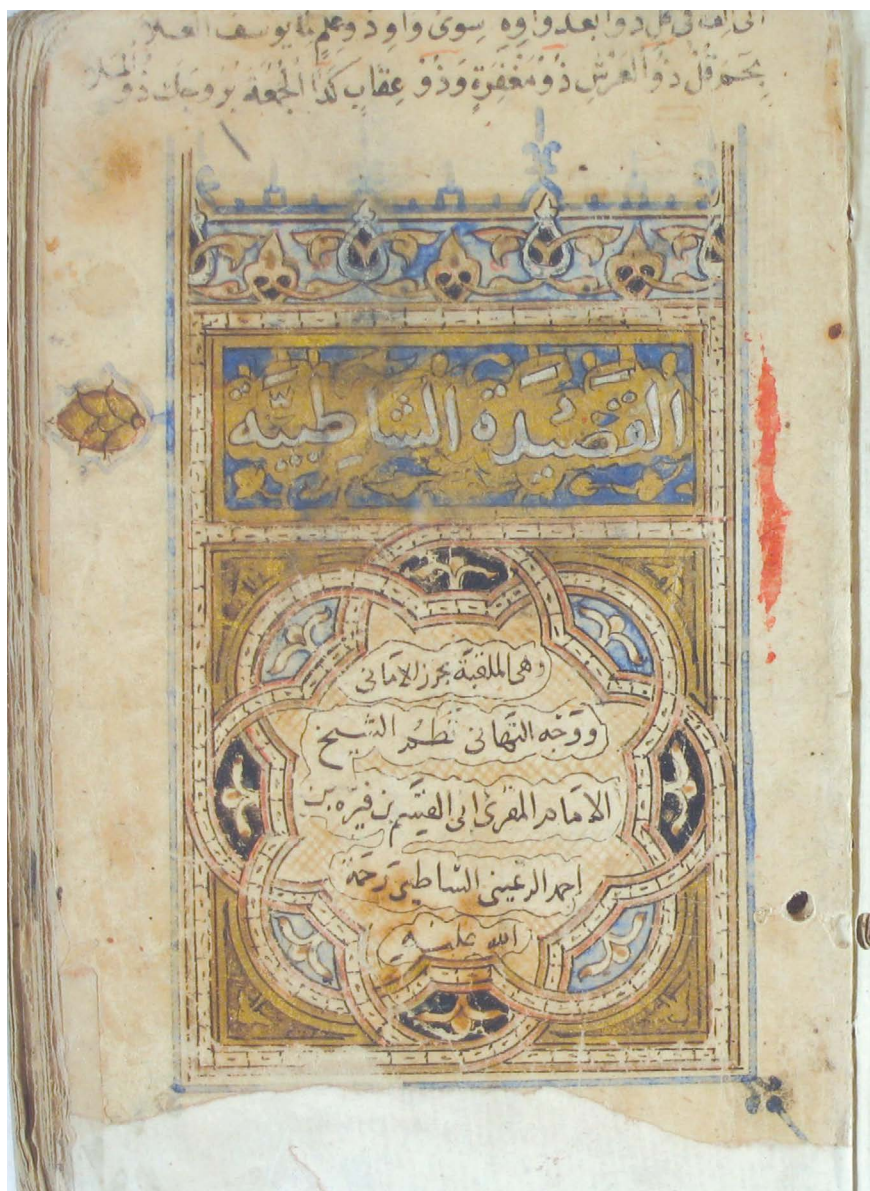 الى الف في قل ذوا بعد واوه سوى واو ذو وعلم يوسف العلا
قل ذو العرش ذو مغفرة وذو عقاب كذا الجمعة بروجك ذو
القصيدة الشاطبية
وهى الملقبة بحرز الامانى
ووجه التهانى نظم الشيخ
الامام المقرى ابى القسم بن فيره بن
احمد الرعينى الشاطبى رحمة
الله عليه